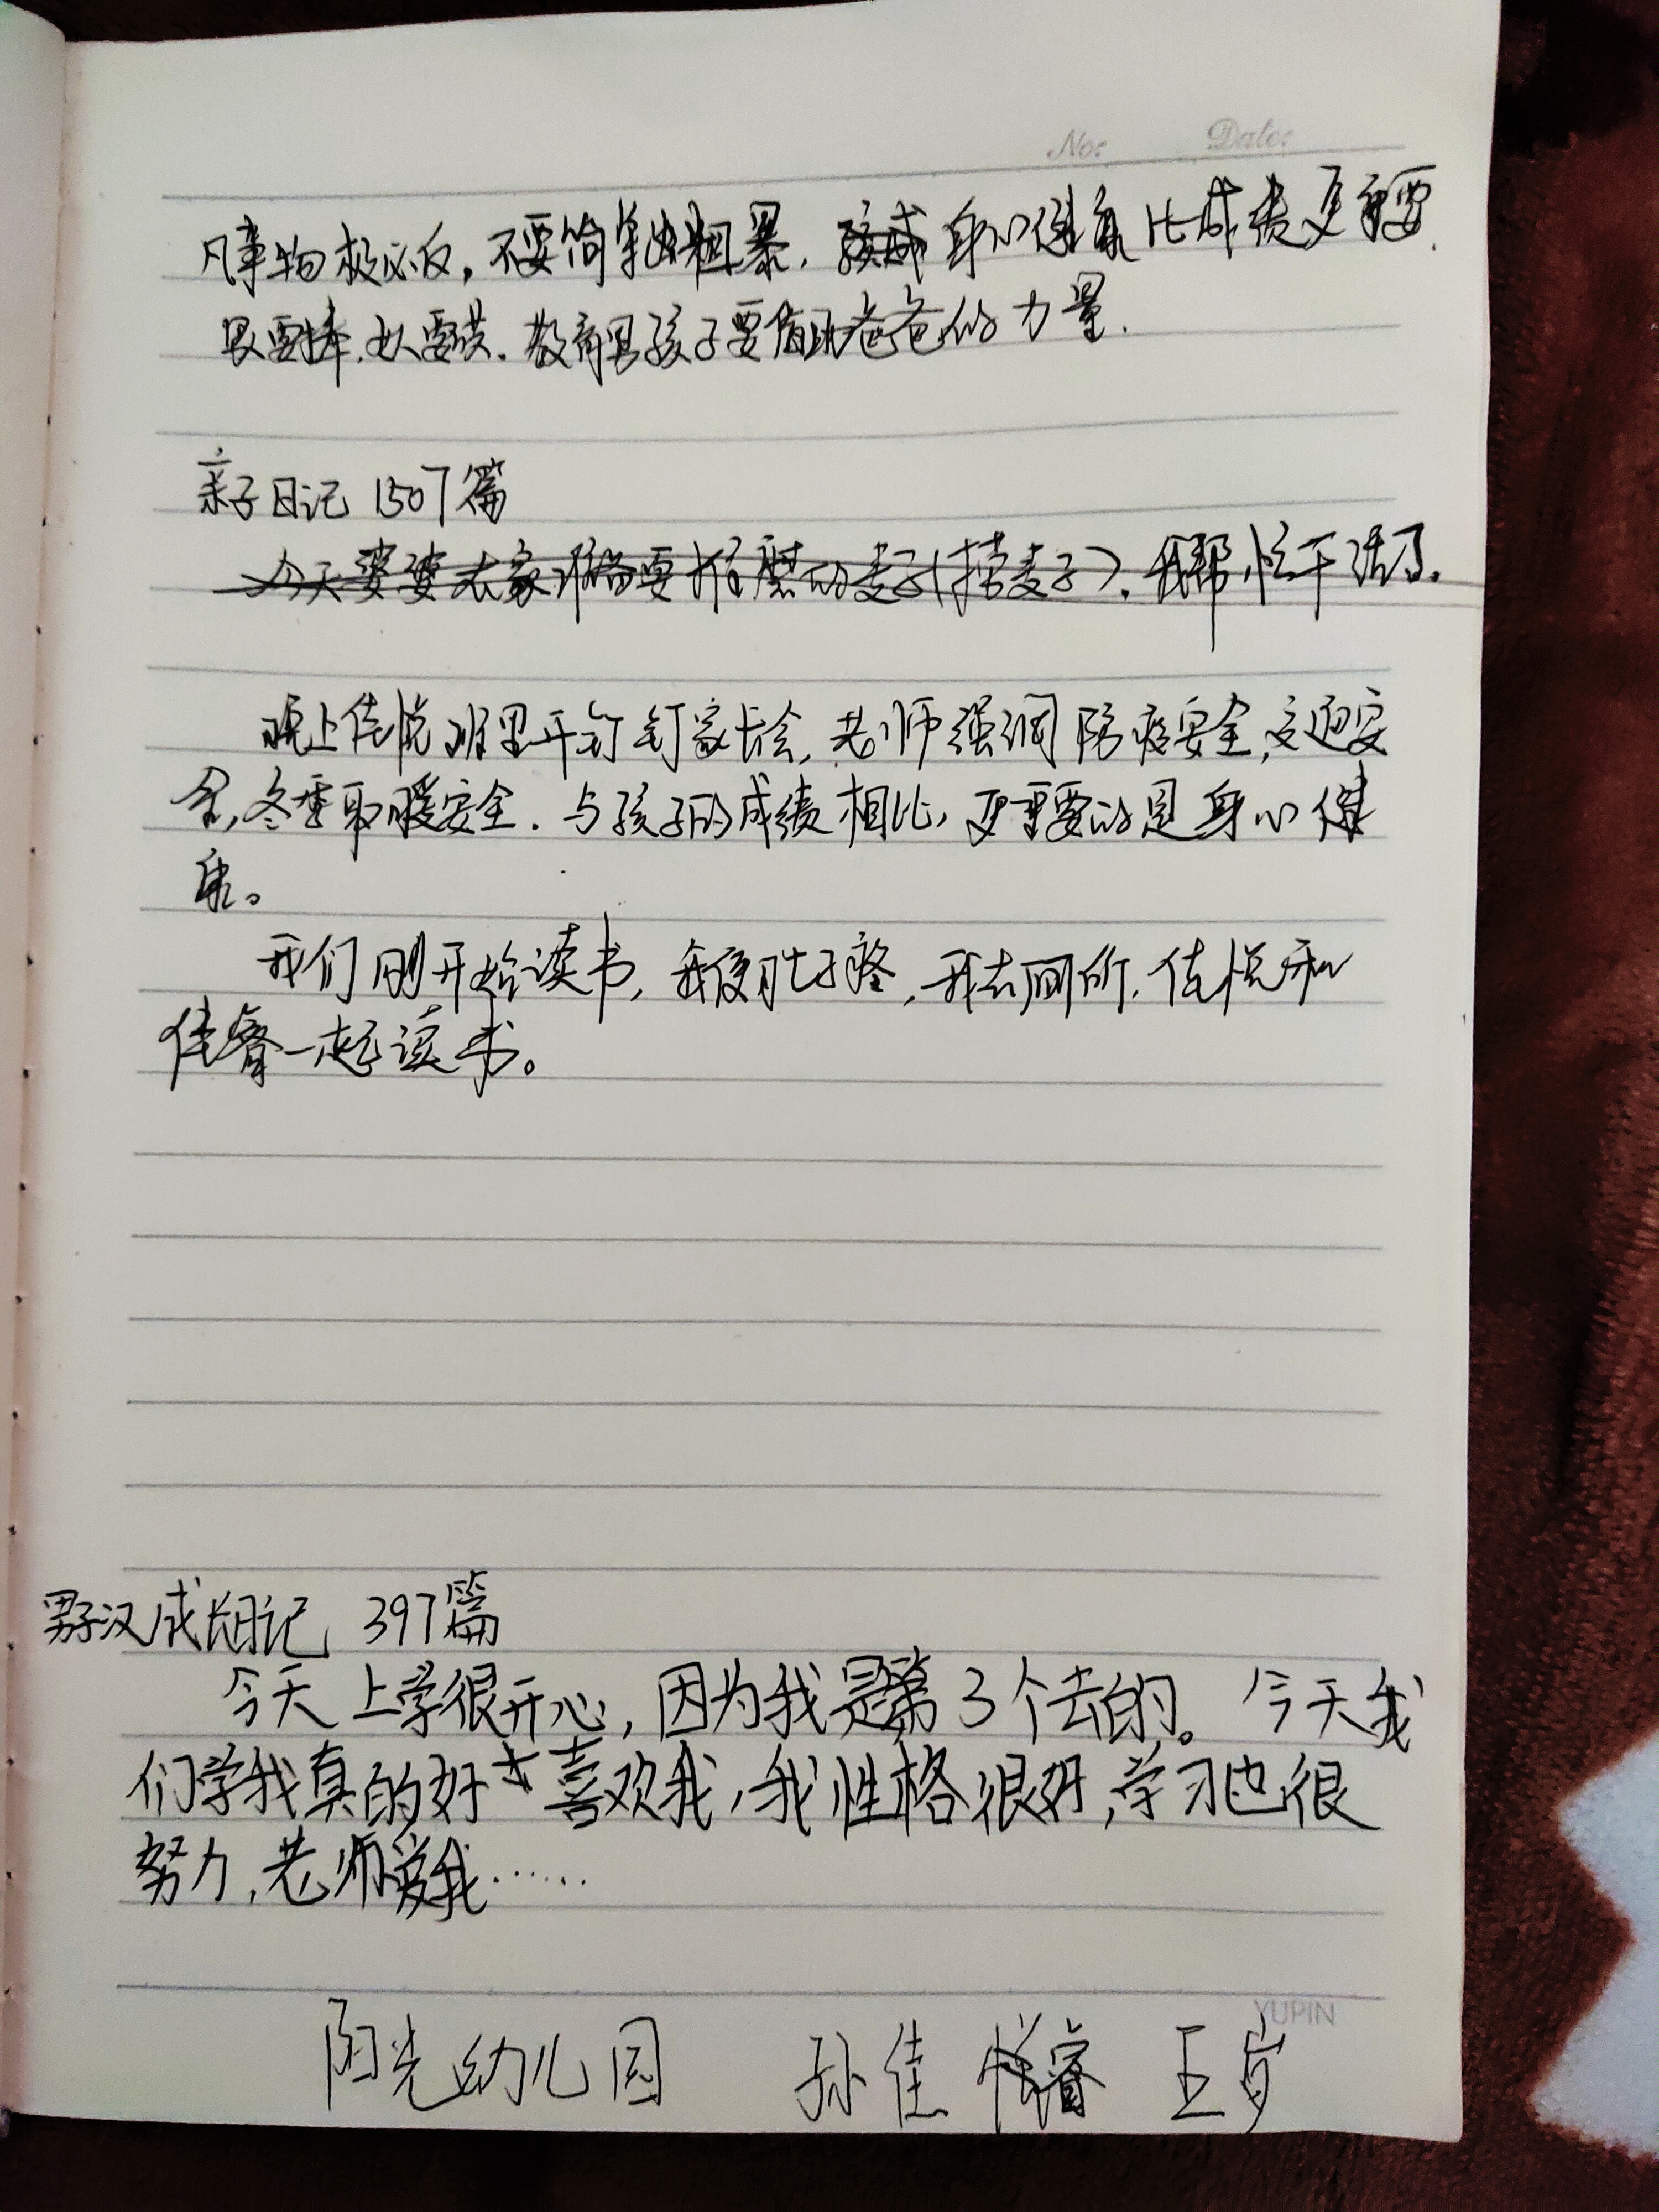 No: Date:
凡事物极必反,不要简单粗暴,身心健康比成绩更重要.
教育男孩子要借助爸爸的力量.
亲子日记 1507篇
今天婆婆在家准备要推磨的麦子(捞麦子).我帮忙干活了.
晚上佳悦班里开钉钉家长会,老师强调防疫安全,交通安
全,冬季取暖安全.与孩子的成绩相比,更重要的是身心健
康。
我们刚开始读书,我便肚子疼,我去厕所,佳悦和
佳睿一起读书。
男子汉成长日记 397篇
今天上学很开心,因为我是第3个去的。今天我
们学我真的好喜欢我,我性格很好,学习也很
努力,老师爱我……
YUPIN
阳光幼儿园 孙佳睿 五岁